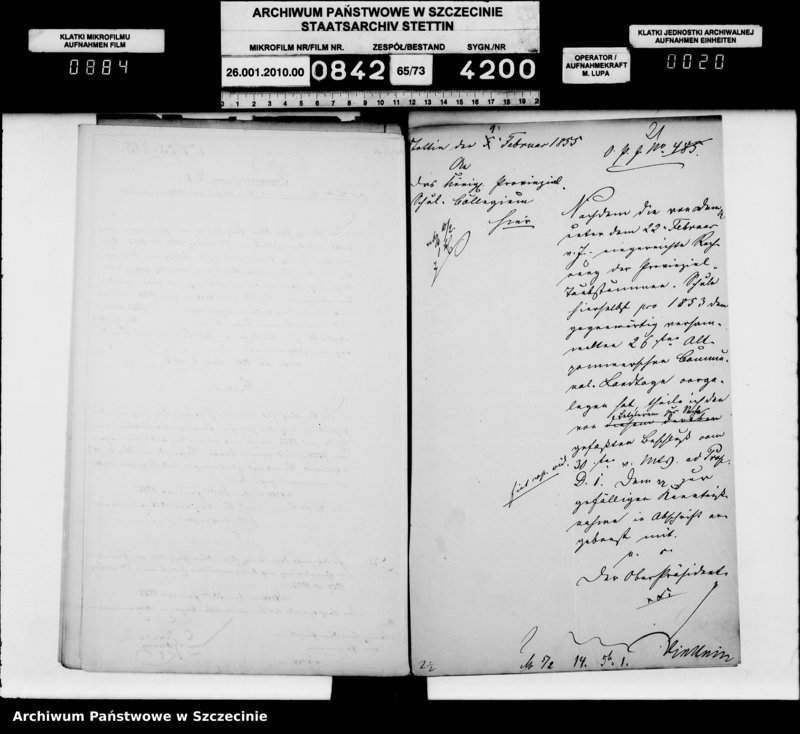 ARCHIWUM PAŃSTWOWE W SZCZECINIE
STAATSARCHIV STETTIN
KLATKI MIKROFILMU
AUFNAHMEN FILM
0884
MIKROFILM NR/FILM NR.
ZESPÓŁ/BESTAND
SYGN./NR
26.001.2010.00
0842
65/73
4200
OPERATOR /
AUFNAHMEKRAFT
M. LUPA
KLATKI JEDNOSTKI ARCHIWALNEJ
AUFNAHMEN EINHEITEN
0020
21
Stettin den Februar 1855
O. P. J. No. 485.
An
das Königl. Provinzial-
Schul-Collegium
hier
Nachdem die von dem
unter dem 22. Februar
v. J. eingereichte Rech-
nung der Provinzial-
Taubstummen-Schule
hierselbst pro 1853 dem
gegenwärtig versam-
melten 26sten Alt-
pommerschen Commu-
nal-Landtage vorge-
legen hat, theile ich den
von
gefaßten Beschluß vom
30sten v. Mts. ad Prop.
D. 1. dem zur
gefälligen Kenntniß-
nahme in Abschrift er-
gebenst mit.
Der Ober Präsident
14.
Archiwum Państwowe w Szczecinie